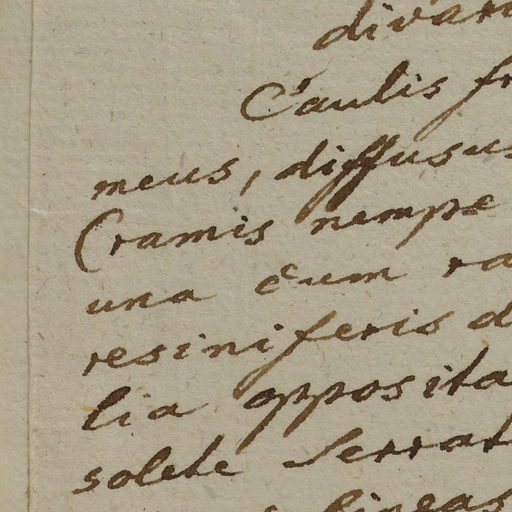 divar
Caulis fr
meus, diffusus
(ramis nempe
una cum ra
resiniferis d
lia opposita
solete serrat
lineas